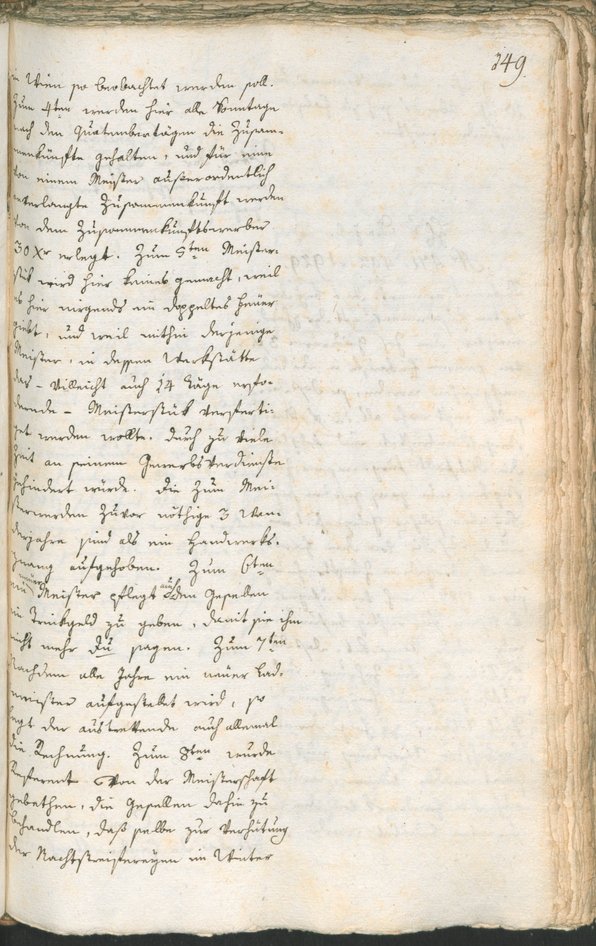 149.
in Wien so beobachtet werden soll.
Zum 4ten werden hier alle Sonntage
nach den Quatembertägen die Zusam-
menkünfte gehalten, und für eine
von einem Meister außerordentlich
verlangte Zusammenkunft werden
von dem Zusammenkunftswerber
30 Xr erlegt. Zum 5ten Meister-
stük wird hier keines gemacht, weil
es hier nirgends ein doppeltes Feuer
giebt, und weil mithin derjenige
Meister, in dessen Werkstätte
das - villeicht auch 14 Täge erfo-
dernde - Meisterstük verferti-
get werden wollte. durch zu viele
Zeit an seinem Gewerbsverdienste
gehindert würde. Die zum Mei-
sterwerden zuvor nöthige 3 Wan-
derjahre sind als ein Handwerks-
zwang aufgehoben. Zum 6ten
ein neuer Meister pflegt auch den Gesellen
ein Trinkgeld zu geben, damit sie ihm
nicht mehr Du sagen. Zum 7ten
Nachdem alle Jahre ein neuer Lad-
meister aufgestellet wird, so
legt der austrettende auch allemal
die Rechnung. Zum 8ten wurde
Referent von der Meisterschaft
gebethen, die Gesellen dahin zu
behandlen, daß selbe zur Verhütung
der Nachtstreifereyen im Winter